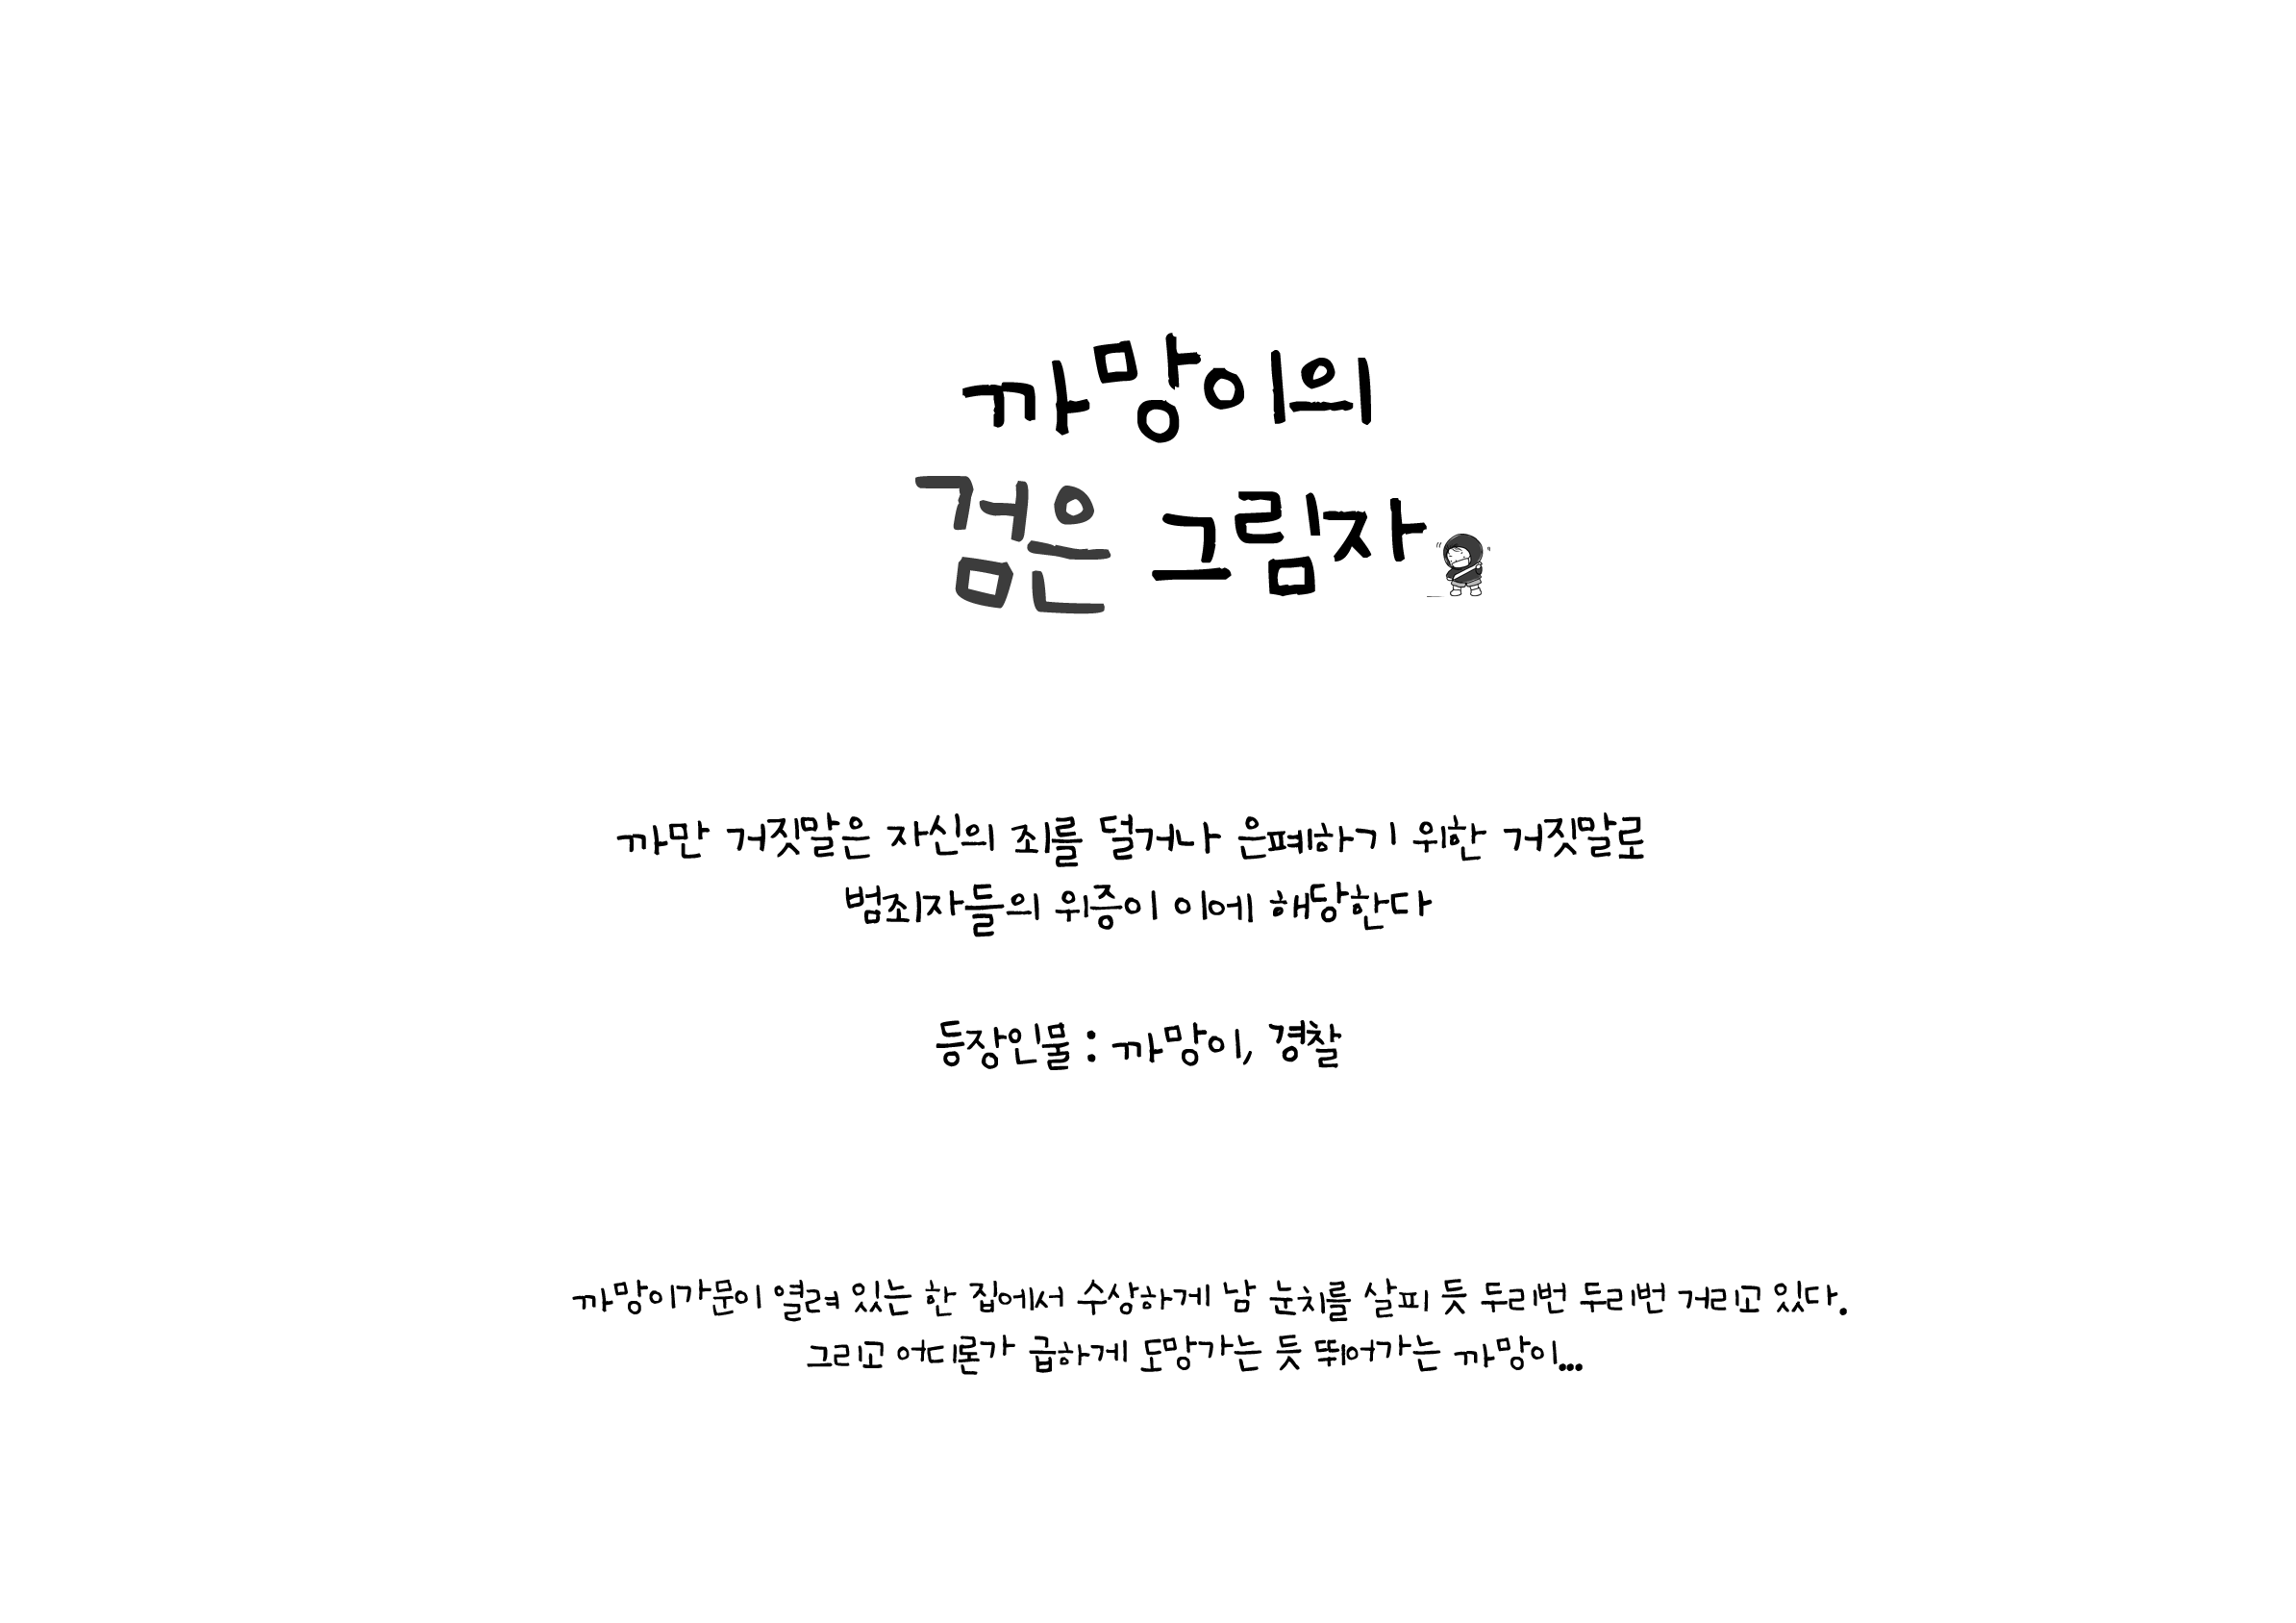 까망이의
검은 그림자
까만 거짓말은 자신의 죄를 덜거나 은폐하기 위한 거짓말로
범죄자들의 위증이 이에 해당한다
등장인물 : 까망이, 경찰
까망이가문이 열려 있는 한 집에서 수상하게 남 눈치를 살피 듯 두리번 두리번 거리고 있다.
그리고 어디론가 급하게 도망가는 듯 뛰어가는 까망이...